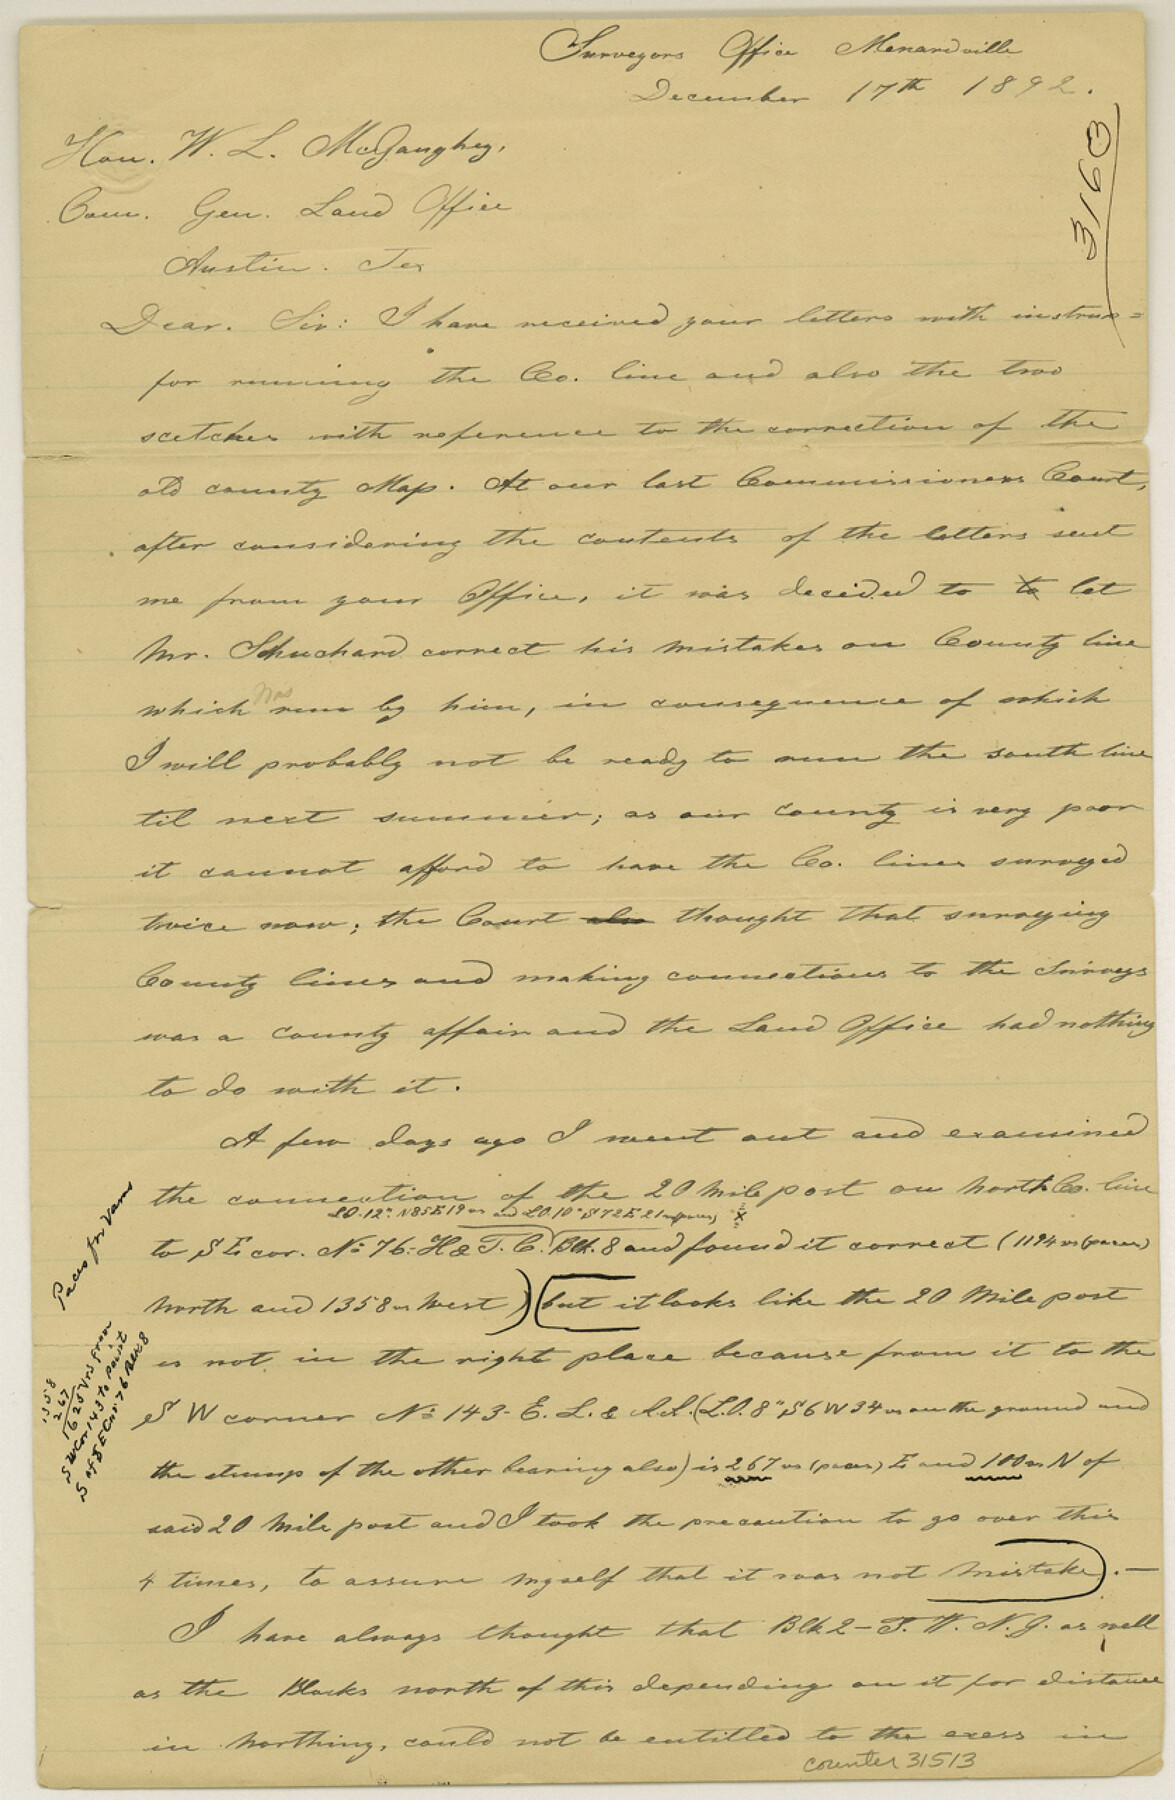 Surveyors Office Menardville
December 17th 1892.
3163
Hon. W. L. McGaughey,
Com. Gen. Land Office
Austin. Tex
Dear. Sir: I have received your letters with instruc=
for running the Co. line and also the two
scetches with reference to the correction of the
old county Map. At our last Commissioners Court,
after considering the contents of the letters sent
me from your Office, it was decided to to let
Mr. Schuchard correct his mistakes on County line
which was run by him, in consequence of which
I will probably not be ready to run the south line
til next summer; as our county is very poor
it cannot afford to have the Co. lines surveyed
twice now; the Court also thought that surveying
County lines and making connections to the Surveys
was a county affair and the Land Office had nothing
to do with it.
A few days ago I went out and examined
the connection of the 20 Mile post on North Co. line
L.O. 12" N85E 19 vs and L.O. 10" S72E 21 vs (paces) x
to S E cor. No 76- H & T. C. Blk. 8 and found it correct (1194 vs (paces)
North and 1358 vs West) (but it looks like the 20 Mile post
is not in the right place because from it to the
S W corner No 143- E. L. & R.R. (L.O. 8" S6W 34 vs on the ground and
the stump of the other bearing also) is 267 vs (paces) E and 100 vs N of
said 20 Mile post and I took the precaution to go over this
4 times, to assure myself that it was not mistake). —
I have always thought that Blk 2 - T. W. N. G. as well
as the Blocks north of this depending on it for distance
in Northing, could not be entitled to the exess in
Paces for Varas
1358
267
1625 Vrs from
S W Cor 143 to point
S of S E Cor 76 Blk 8
counter 31513